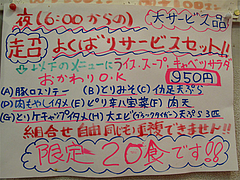 夜(6:00からの
大サービス品
超よくばりサービスセット!!
以下のメニューにライス、スープ、キャベツサラダ
おかわりO.K
950円
(A)豚ロースソテー (B)とりみそ (C)イカ足天ぷら
(D)肉もやしイタメ (E)ピリ辛八宝菜 (F)肉天
(G)とりケチャップイタメ (H)大エビ 天ぷら3匹
組合せ自由
できません!!
限定20食です!!